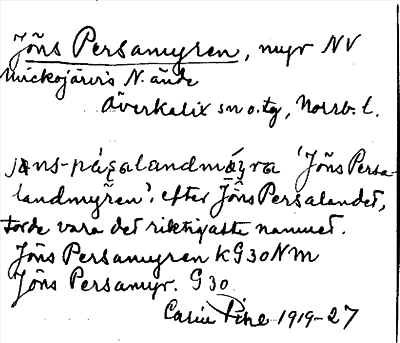 Jöns Persamyren, myr NV
Mickojärvis N. ände
Överkalix sn o. tg, Norrb. l.
jɷns-pæʂalandmýra 'Jöns Persa-
landmyren', efter Jöns Persalandet,
torde vara det riktigaste namnet.
Jöns Persamyren KG30NM
Jöns Persamyr. G30
Carin Pihl 1919-27